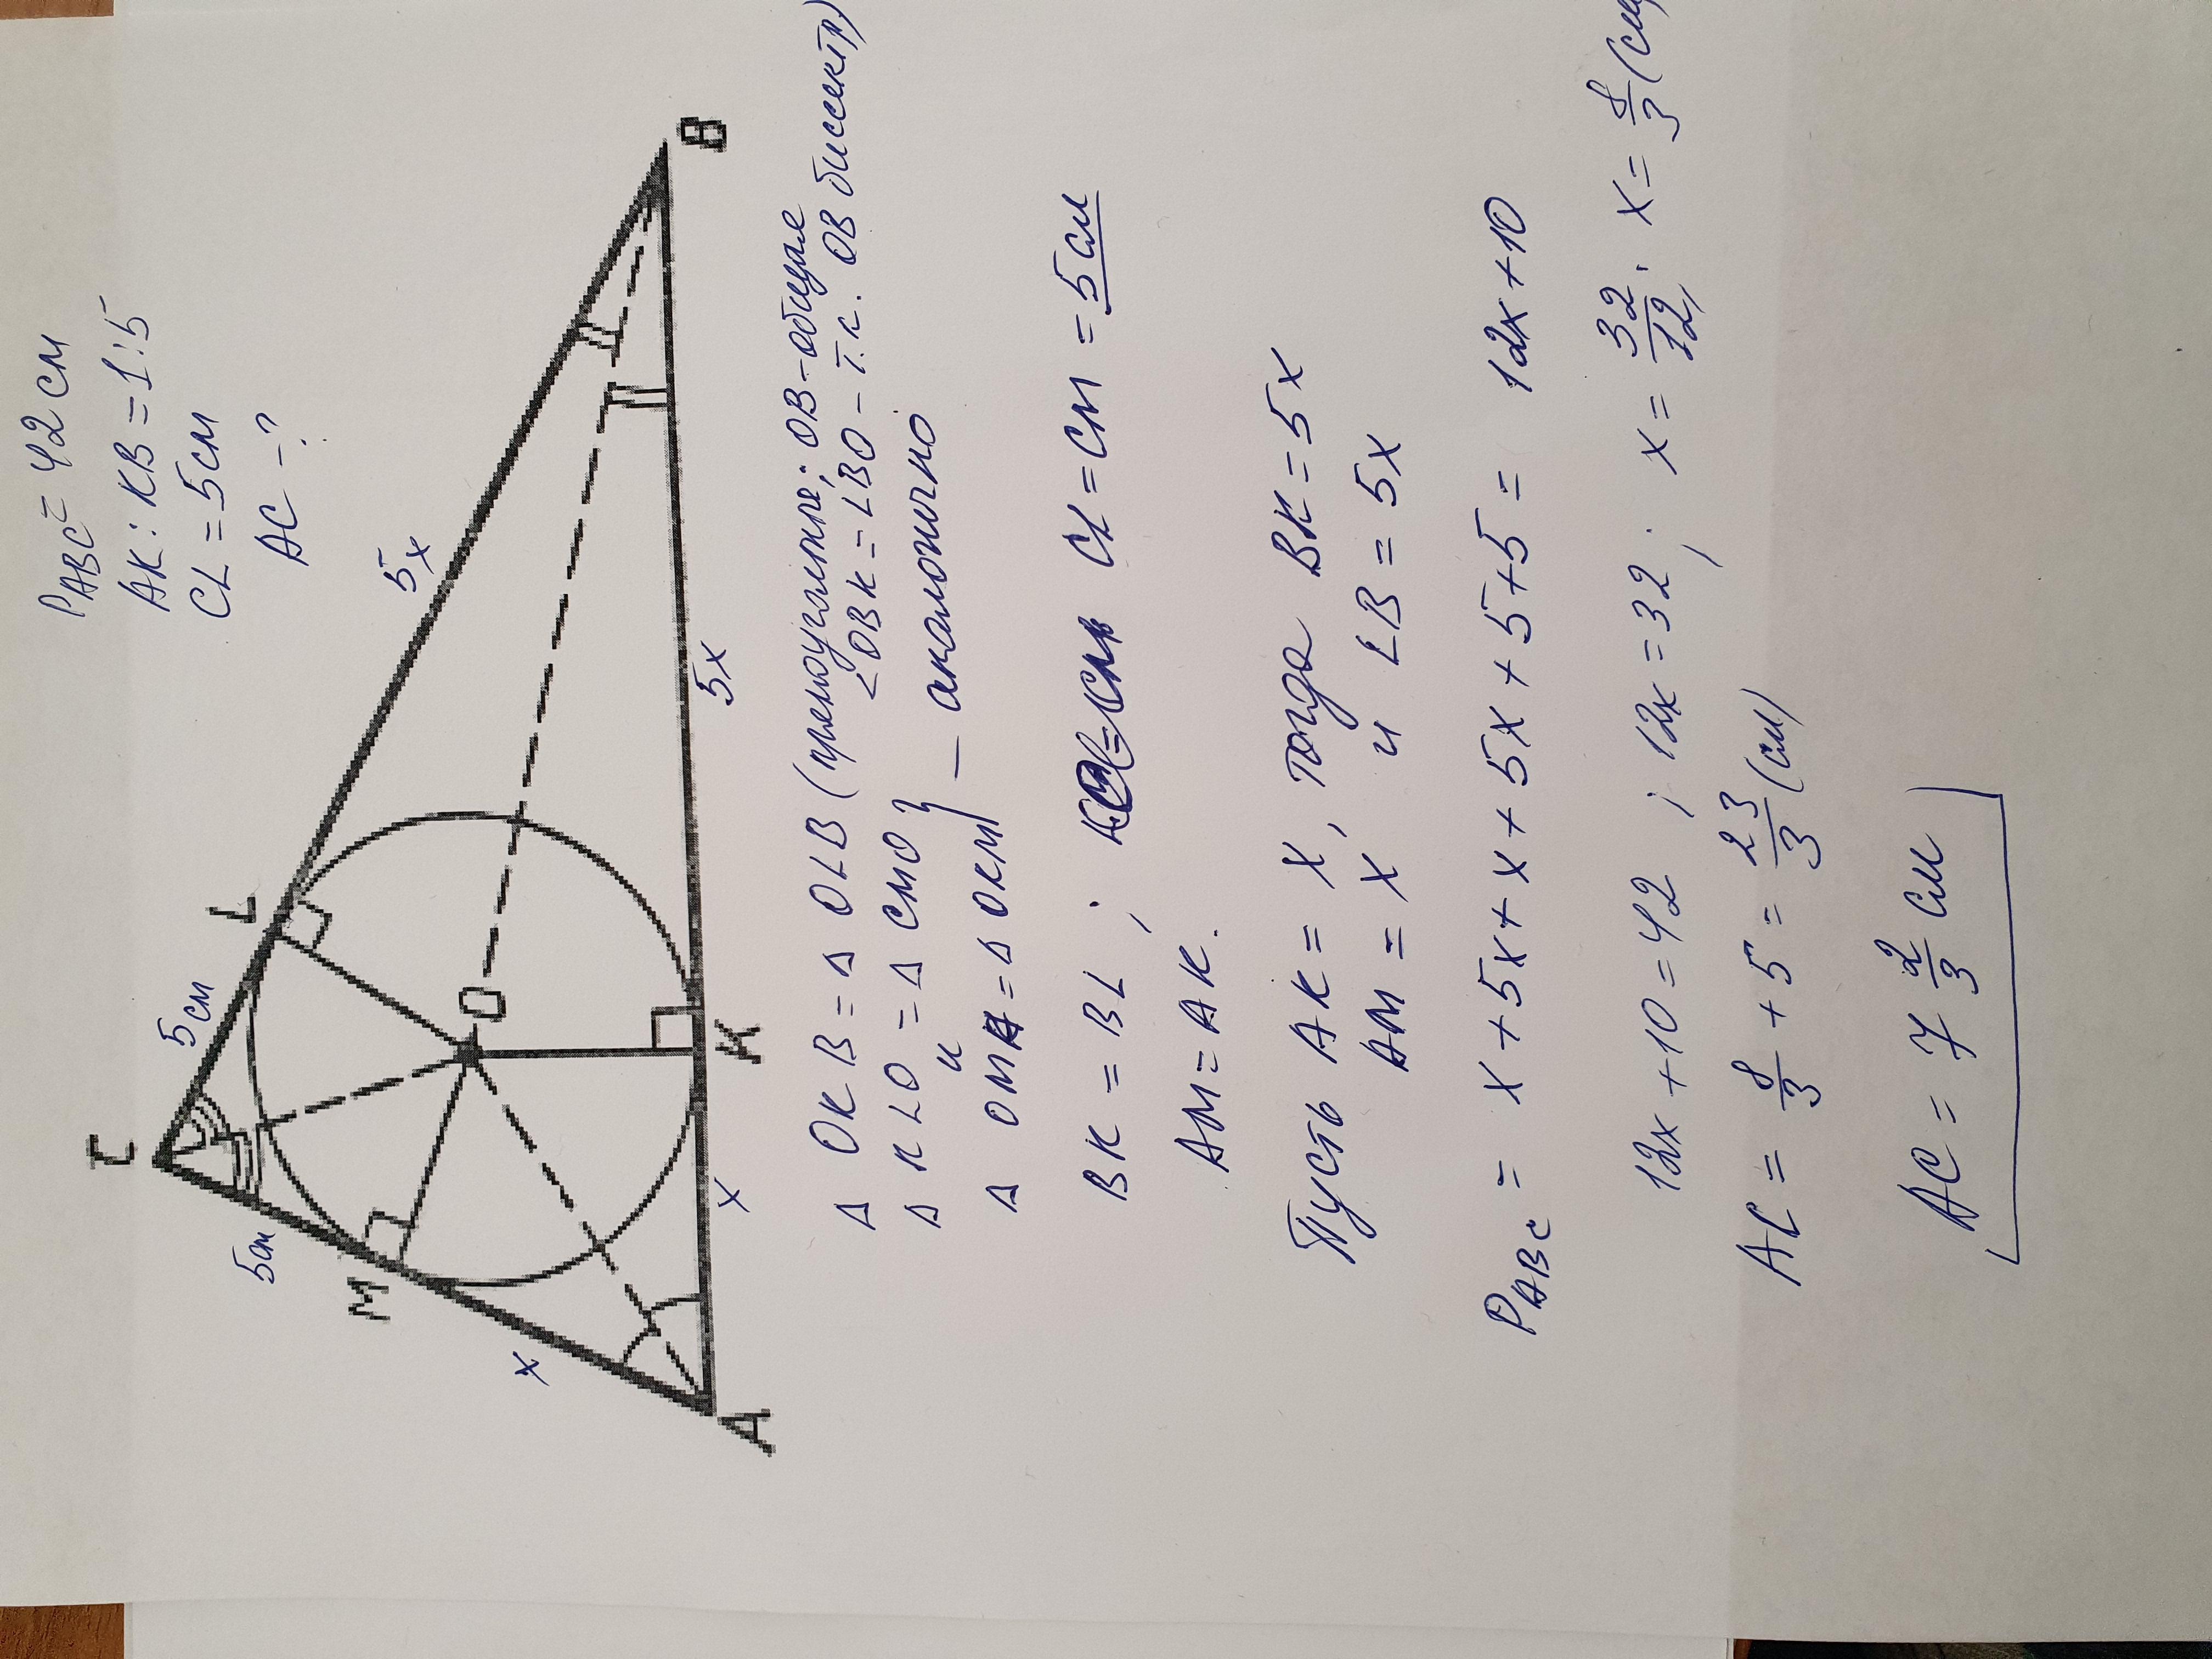 P ABC = 42 см
AK : KB = 1:5
CL = 5см
AC - ?
C
5см
L
5x
5см
M
O
x
A
x
K
5x
B
Δ OKB = Δ OLB (прямоугольные; OB - общая
∠OBK = ∠LBO - т.к. OB биссектр)
Δ KLO = Δ CMO } - аналогично
и
Δ OMA = Δ OKM
BK = BL ; CL = CM = 5см
AM = AK.
Пусть AK = x, тогда BK = 5x
AM = x, и LB = 5x
P ABC = x + 5x + x + 5x + 5 + 5 = 12x + 10
12x + 10 = 42 ; 12x = 32 ; x = 32/12; x = 8/3 (см)
AC = 8/3 + 5 = 23/3 (см)
AC = 7 2/3 см